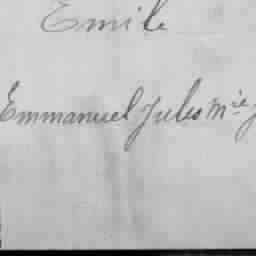 Emile
Emmanuel Jules Mie